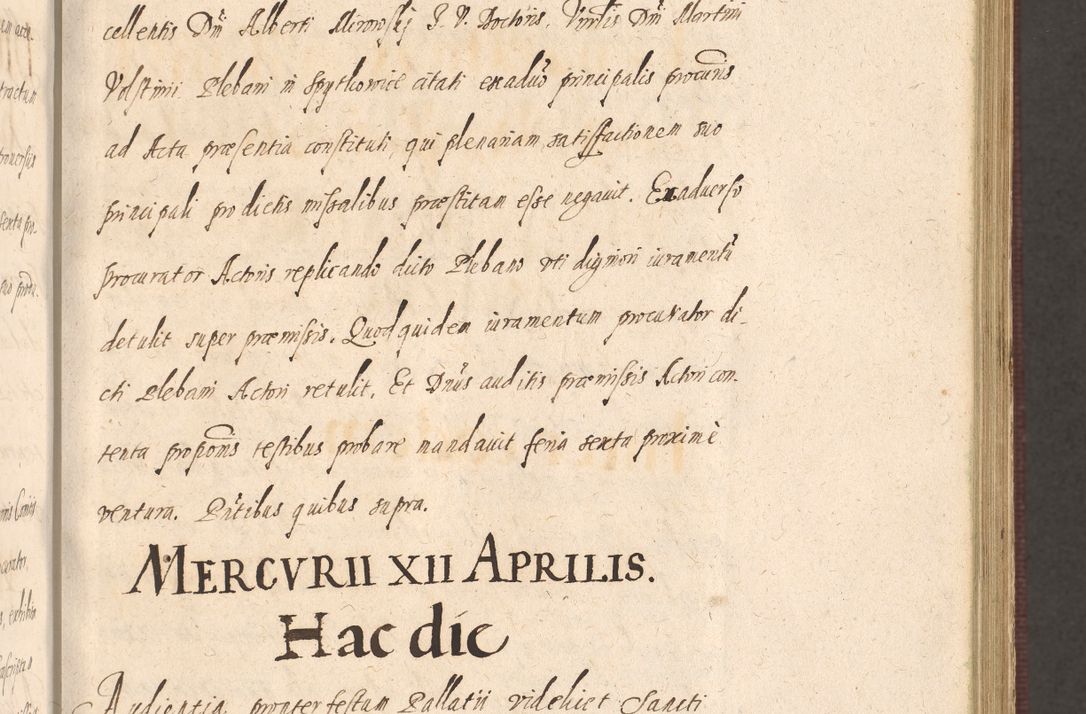 cellentis Dni Alberti Mirowsky J. V. Doctoris, Vnblis Dni Martini
Volstinii Plebani in Spytkowice citati ex aduo principalis procuris
ad Acta præsentia constituti, qui plenariam satisfactionem suo
principali pro dictis missalibus præstitam esse negauit. Ex aduerso
procurator Actoris replicando dicto Plebano vti digniori iuramentũ
detulit super præmissis. Quod quidem iuramentum procurator di-
cti Plebani Actori retulit. Et Dnus auditis præmissis Actori con-
tenta proponis testibus probare mandauit feria sexta proximè
ventura. Pntibus quibus supra.
MERCVRII XII APRILIS.
Hac die
Audientia propter festum Pallatii videlicet Sancti
tractum
exhibito